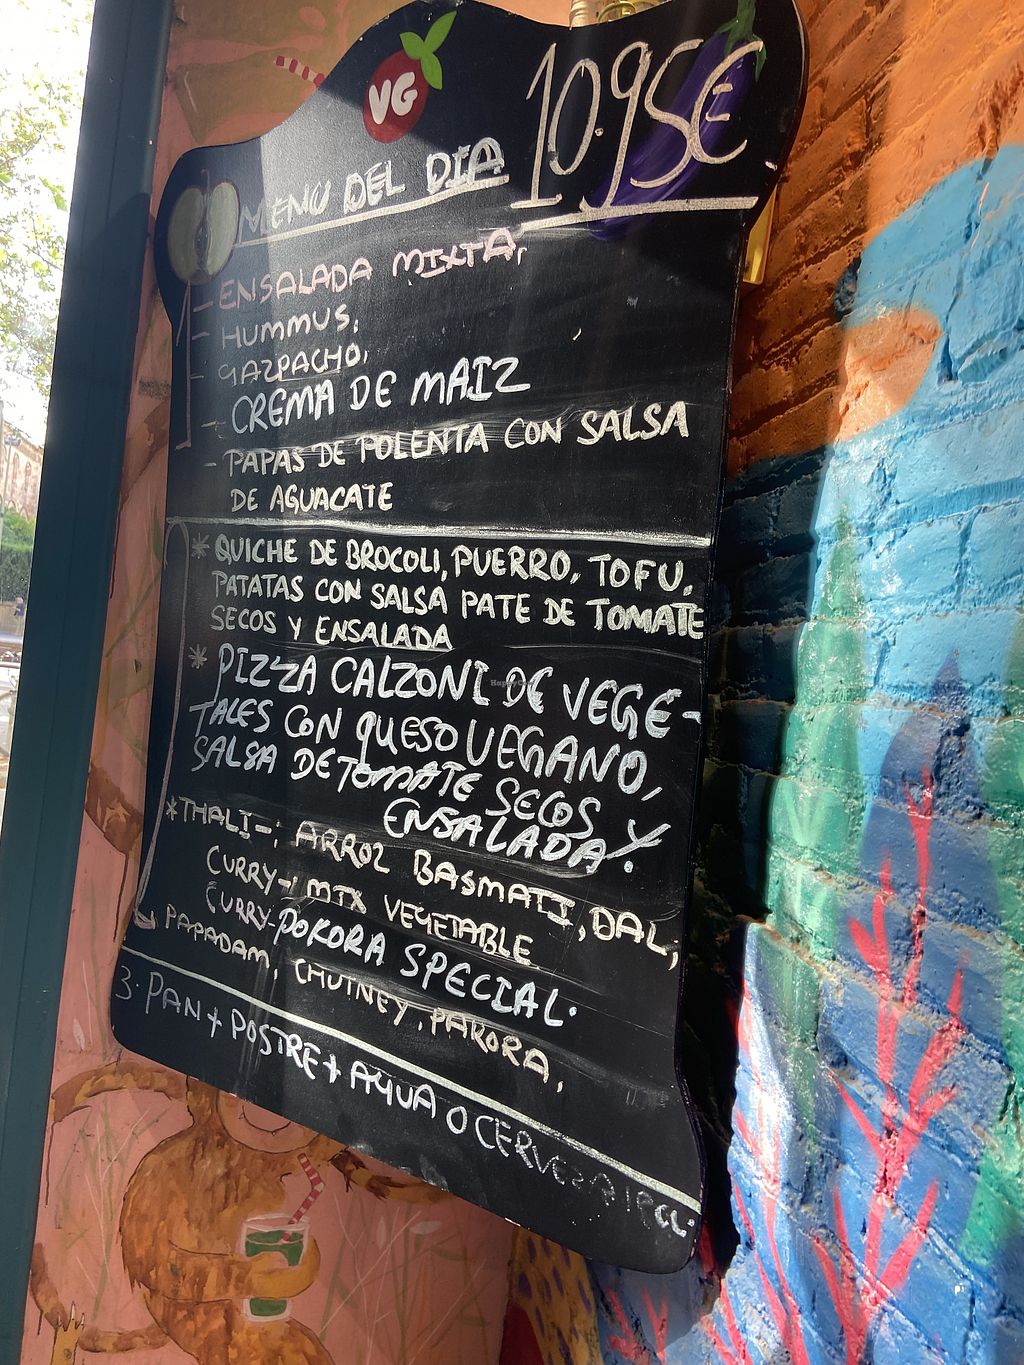 VG
10.95€
MENU DEL DIA
- ENSALADA MIXTA,
- HUMMUS,
- GAZPACHO,
- CREMA DE MAIZ
- PAPAS DE POLENTA CON SALSA
DE AGUACATE
* QUICHE DE BROCOLI, PUERRO, TOFU,
PATATAS CON SALSA PATE DE TOMATE
SECOS Y ENSALADA
* PIZZA CALZONI DE VEGE-
TALES CON QUESO VEGANO,
SALSA DE TOMATE SECOS Y
ENSALADA.
* THALI-; ARROZ BASMATI, DAL,
CURRY-; MIX VEGETABLE ;
CURRY-POKORA SPECIAL.
PAPADAM, CHUTNEY, PAKORA,
3. PAN + POSTRE + AGUA O CERVEZA